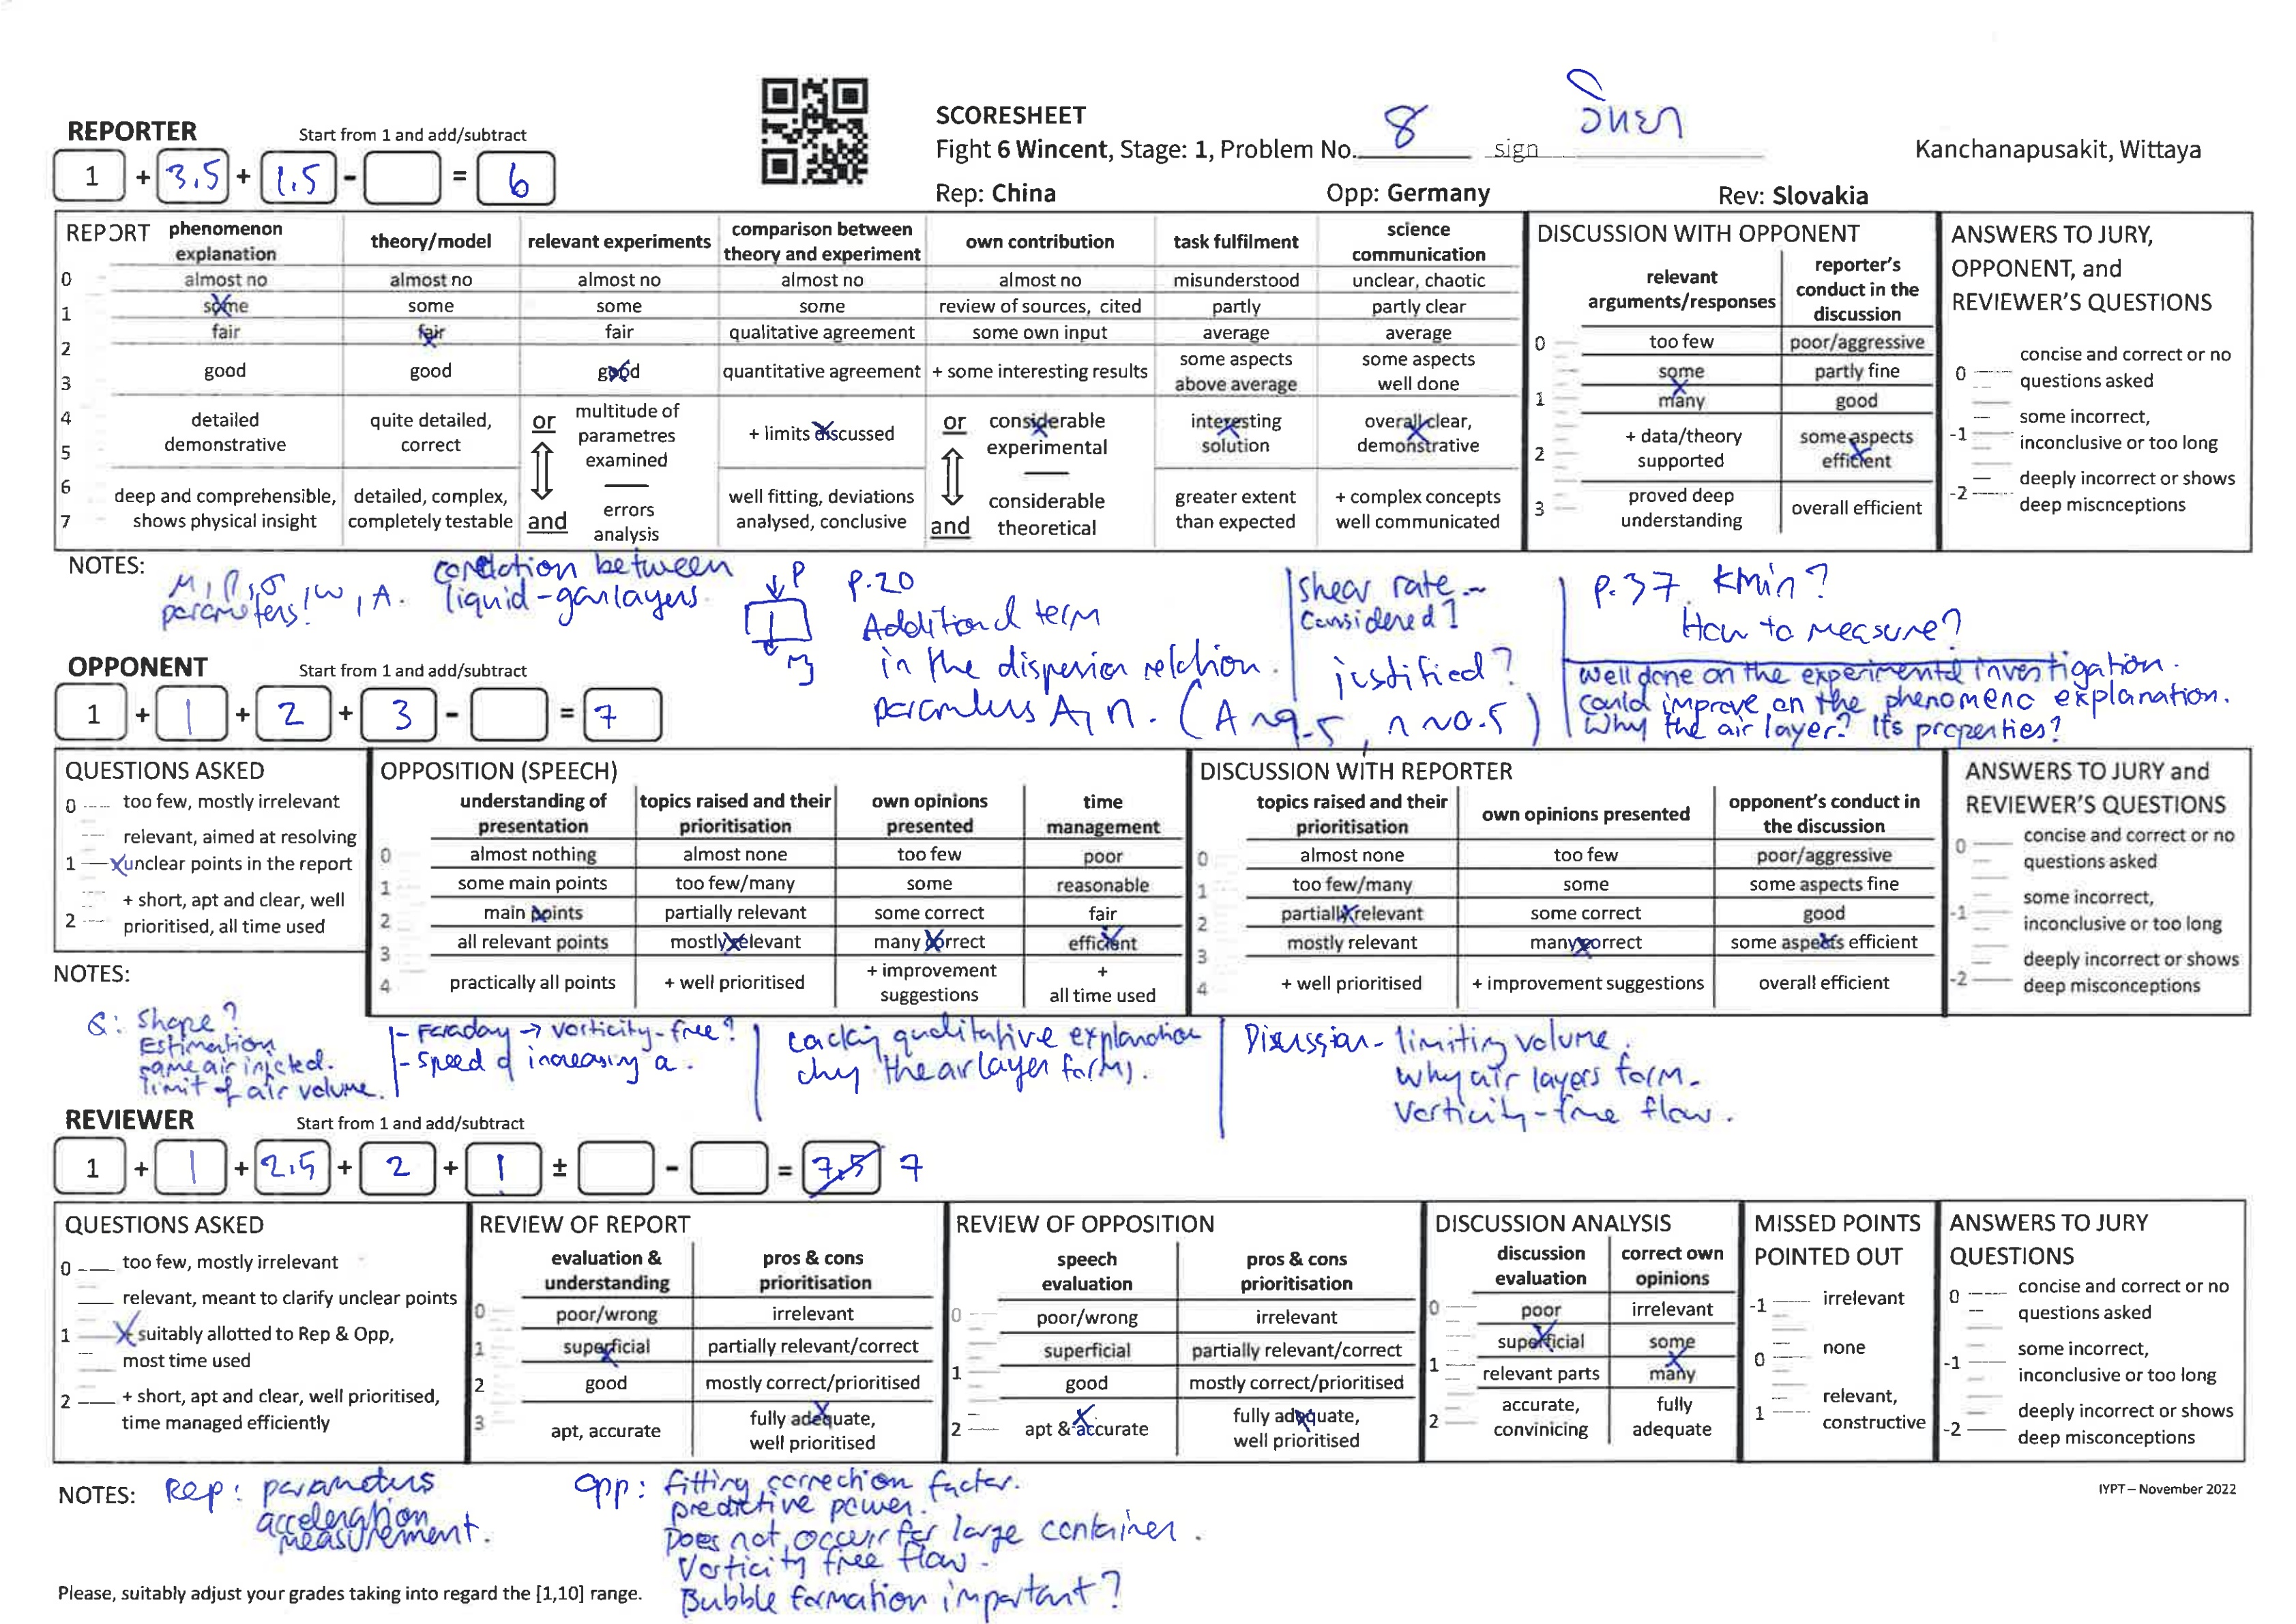 SCORESHEET
REPORTER Start from 1 and add/subtract
Fight 6 Wincent, Stage: 1, Problem No. 8 sign วิทยา Kanchanapusakit, Wittaya
1 + 3.5 + 1.5 - = 6
Rep: China Opp: Germany Rev: Slovakia
REPORT
phenomenon explanation
theory/model
relevant experiments
comparison between theory and experiment
own contribution
task fulfilment
science communication
0 almost no almost no almost no almost no almost no misunderstood unclear, chaotic
1 some some some some review of sources, cited partly partly clear
2 fair fair fair qualitative agreement some own input average average
3 good good good quantitative agreement + some interesting results some aspects above average some aspects well done
4 detailed demonstrative quite detailed, correct or multitude of parametres examined + limits discussed or considerable experimental interesting solution overall clear, demonstrative
5
6 deep and comprehensible, shows physical insight detailed, complex, completely testable and errors analysis well fitting, deviations analysed, conclusive and considerable theoretical greater extent than expected + complex concepts well communicated
7
DISCUSSION WITH OPPONENT
relevant arguments/responses
reporter's conduct in the discussion
0 too few poor/aggressive
some partly fine
1 many good
2 + data/theory supported some aspects efficient
3 proved deep understanding overall efficient
ANSWERS TO JURY, OPPONENT, and REVIEWER'S QUESTIONS
0 concise and correct or no questions asked
-1 some incorrect, inconclusive or too long
-2 deeply incorrect or shows deep miscnceptions
NOTES:
parameters! , w, A.
correlation between
liquid-gas layers.
P
mg
p.20
Additional term
in the dispersion relation.
parameters A, n. (A ~ 9.5, n ~ 0.5)
shear rate
considered?
justified?
p.37 kmin?
How to measure?
Well done on the experimental investigation.
could improve on the phenomena explanation.
Why the air layer? Its properties?
OPPONENT Start from 1 and add/subtract
1 + 1 + 2 + 3 - = 7
QUESTIONS ASKED
0 too few, mostly irrelevant
relevant, aimed at resolving
1 unclear points in the report
+ short, apt and clear, well
2 prioritised, all time used
OPPOSITION (SPEECH)
understanding of presentation
topics raised and their prioritisation
own opinions presented
time management
0 almost nothing almost none too few poor
1 some main points too few/many some reasonable
2 main points partially relevant some correct fair
3 all relevant points mostly relevant many correct efficient
4 practically all points + well prioritised + improvement suggestions + all time used
DISCUSSION WITH REPORTER
topics raised and their prioritisation
own opinions presented
opponent's conduct in the discussion
0 almost none too few poor/aggressive
1 too few/many some some aspects fine
2 partially relevant some correct good
3 mostly relevant many correct some aspects efficient
4 + well prioritised + improvement suggestions overall efficient
ANSWERS TO JURY and REVIEWER'S QUESTIONS
0 concise and correct or no questions asked
-1 some incorrect, inconclusive or too long
-2 deeply incorrect or shows deep misconceptions
NOTES:
Q: Shape?
Estimation
same air injected.
limit of air volume.
- Faraday → vorticity-free?
- speed of increasing a.
Lacking qualitative explanation
why the air layer forms.
Discussion - limiting volume.
Why air layers form.
Vorticity-free flow.
REVIEWER Start from 1 and add/subtract
1 + 1 + 2.5 + 2 + 1 ± - = 7.5 7
QUESTIONS ASKED
0 too few, mostly irrelevant
relevant, meant to clarify unclear points
1 suitably allotted to Rep & Opp,
most time used
2 + short, apt and clear, well prioritised,
time managed efficiently
REVIEW OF REPORT
evaluation & understanding
pros & cons prioritisation
0 poor/wrong irrelevant
1 superficial partially relevant/correct
2 good mostly correct/prioritised
3 apt, accurate fully adequate, well prioritised
REVIEW OF OPPOSITION
speech evaluation
pros & cons prioritisation
0 poor/wrong irrelevant
superficial partially relevant/correct
1 good mostly correct/prioritised
2 apt & accurate fully adequate, well prioritised
DISCUSSION ANALYSIS
discussion evaluation
correct own opinions
0 poor irrelevant
superficial some
1 relevant parts many
2 accurate, convinicing fully adequate
MISSED POINTS POINTED OUT
-1 irrelevant
0 none
1 relevant, constructive
ANSWERS TO JURY QUESTIONS
0 concise and correct or no questions asked
-1 some incorrect, inconclusive or too long
-2 deeply incorrect or shows deep misconceptions
NOTES:
Rep: parameters
acceleration
measurement.
Opp: Fitting correction factor.
predictive power.
Does not occur for large container.
Vorticity free flow.
Bubble formation important?
IYPT – November 2022
Please, suitably adjust your grades taking into regard the [1,10] range.